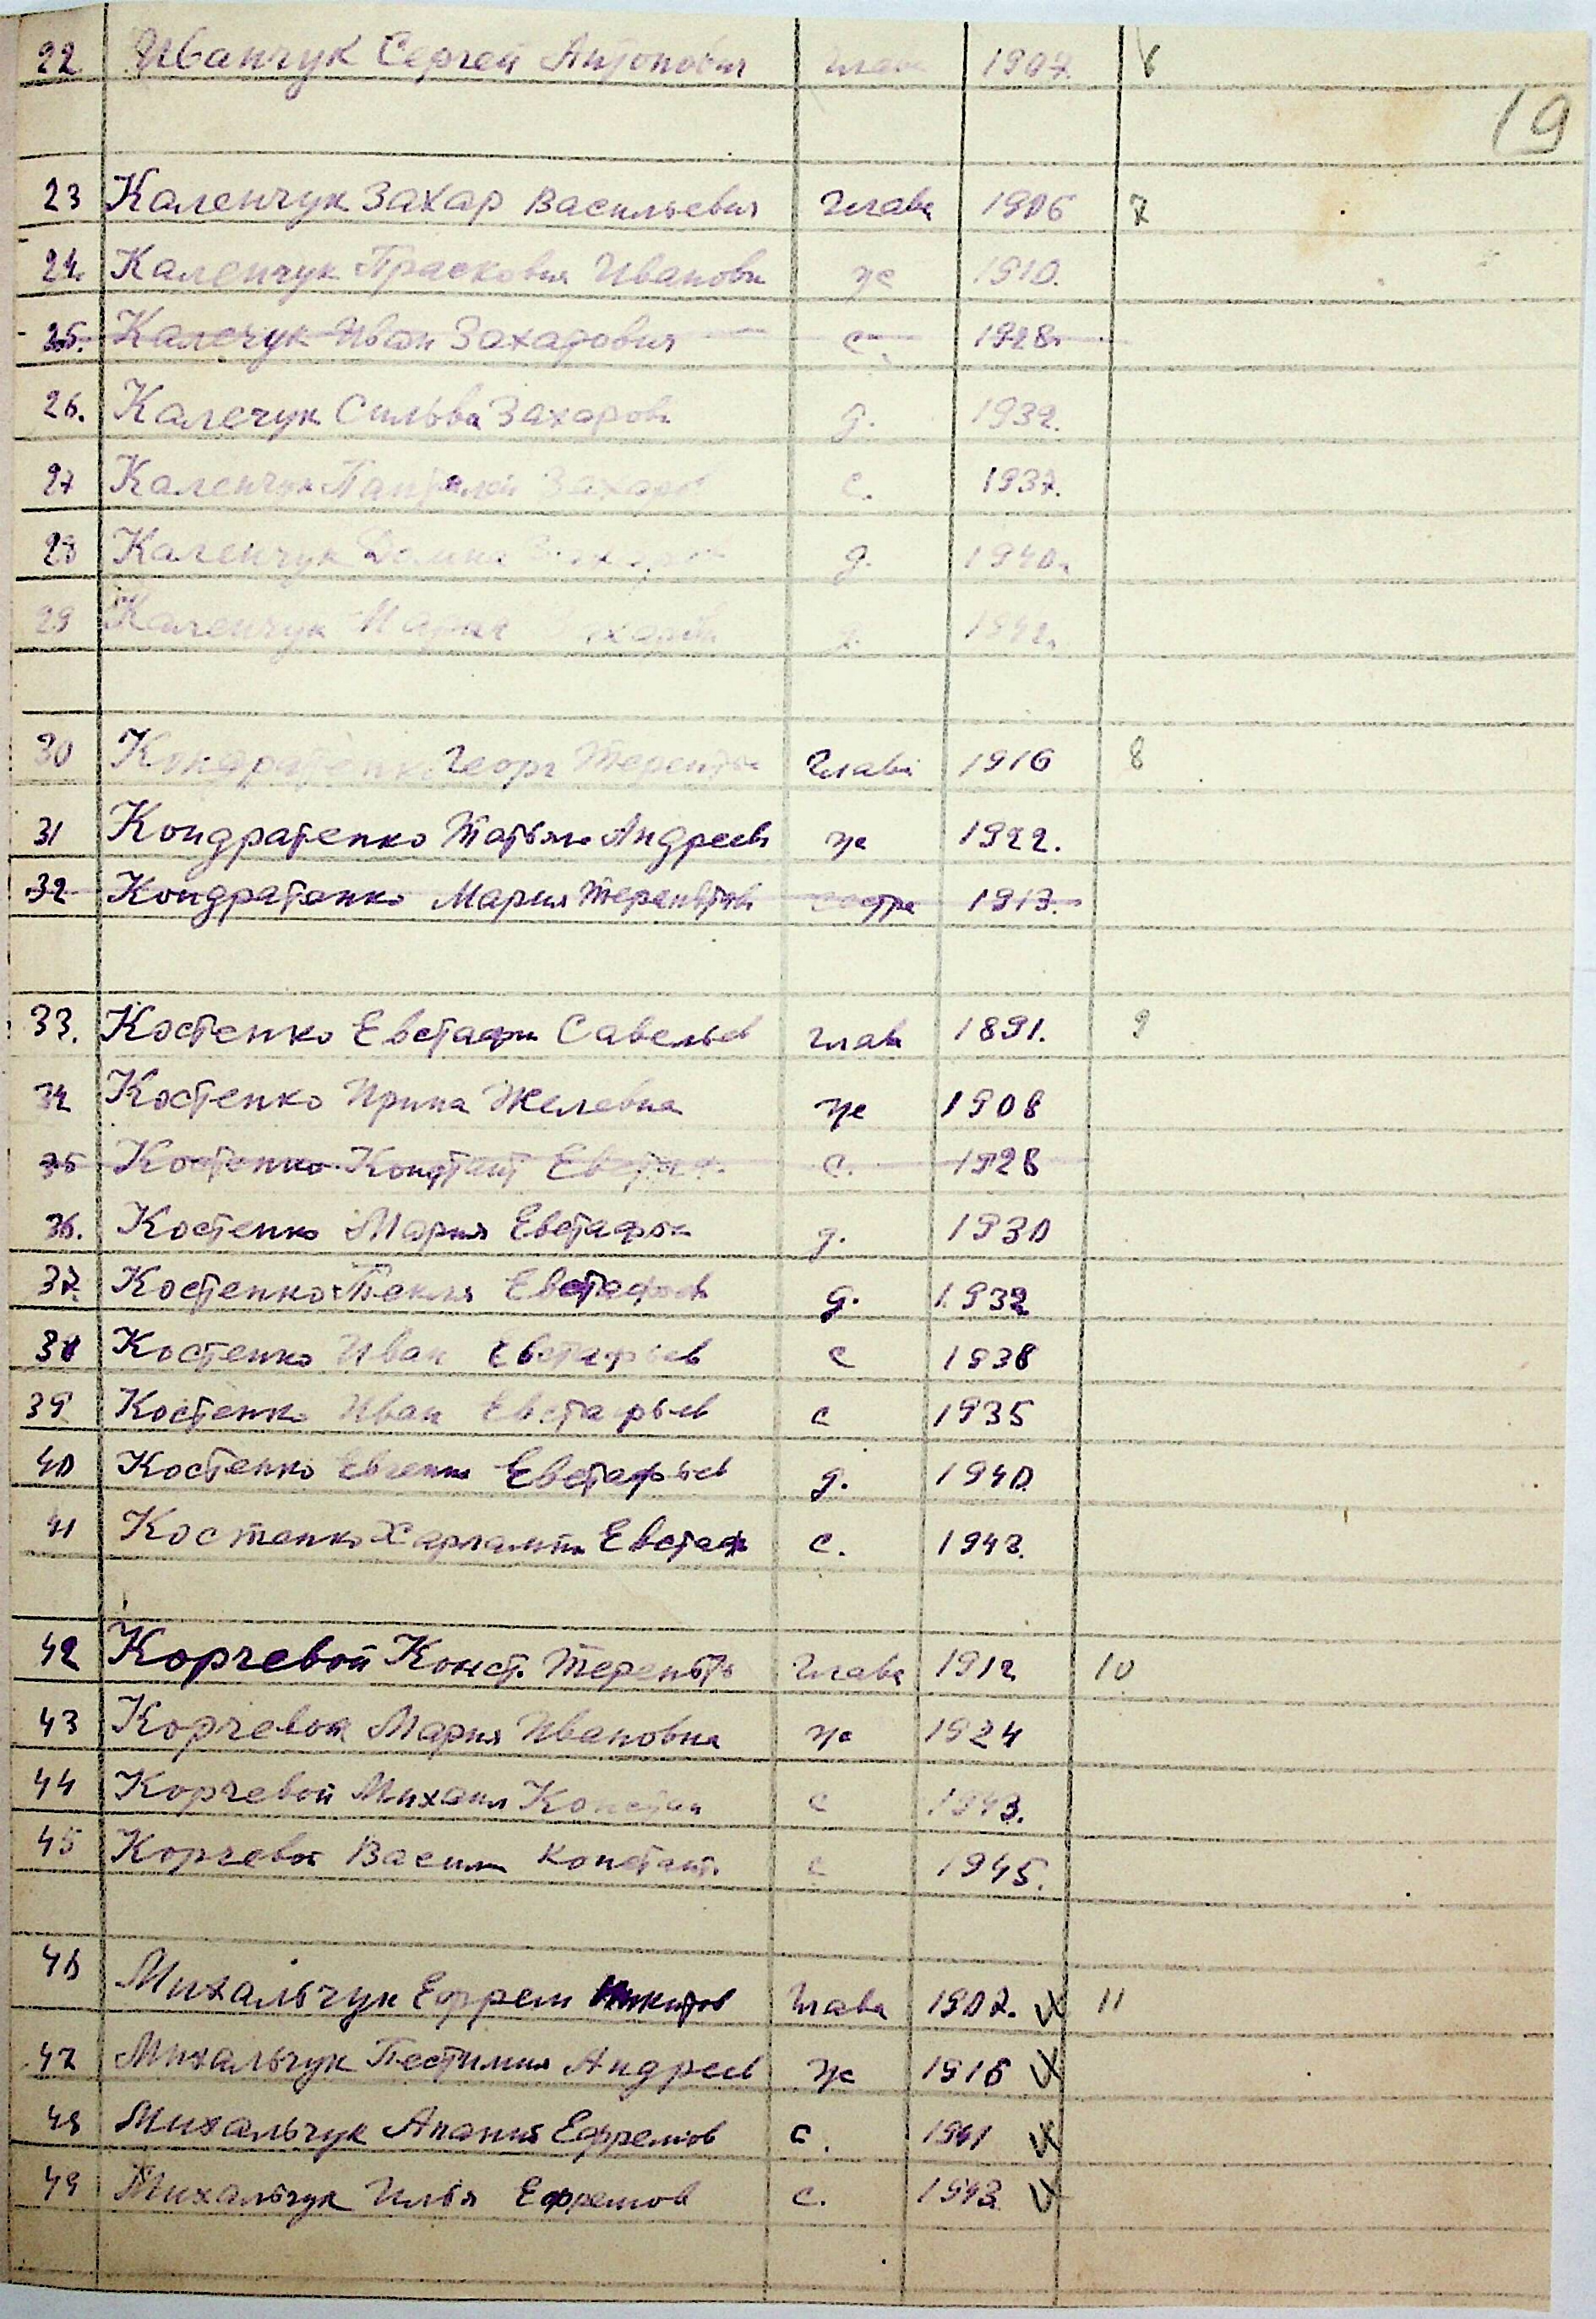 22 Иванчук Сергей Антонович глава 1907. 6
19
23 Каленчук Захар Васильевич глава 1906 7
24. Каленчук Прасковия Ивановн же 1910.
25. Калечук Иван Захарович с. 1928.
26. Калечук Сильва Захаров д. 1932.
27 Каленчук Пантелей Захаров с. 1937.
28 Каленчук Домна д. 1940.
29 Каленчук Мария д. 1942.
30 Кондратенко Георг Терентьев глава 1916 8
31 Кондратенко Татьяна Андреев же 1922.
32 Кондратенко Мария Терентьев сестра 1913.
33. Костенко Евстафи Савельев глава 1891. 9
34 Костенко Ирина Желевна же 1908
35 Костенко Евстаф. с. 1928
36. Костенко Мария д. 1930
37. Костенко Текля Евстафьев д. 1932
38 Костенко Иван Евстафьев с 1938
39 Костенко Иван Евстафьев с 1935
40 Костенко Евгения Евстафьев д. 1940.
41 Костенко Харлампи Евстаф с. 1943.
42 Корчевой Конст. Терентьев глава 1912 10
43 Корчевая Мария Ивановна же 1924
44 Корчевой Михаил Констан с 1943.
45 Корчевой Васили Констант. с 1945.
46 Михальчук Ефрем Никитов глава 1907. V 11
47 Михальчук Пестимия Андреев же 1916 V
48 Михальчук Анания Ефремов с. 1941 V
49 Михальчук Илья Ефремов с. 1943 V